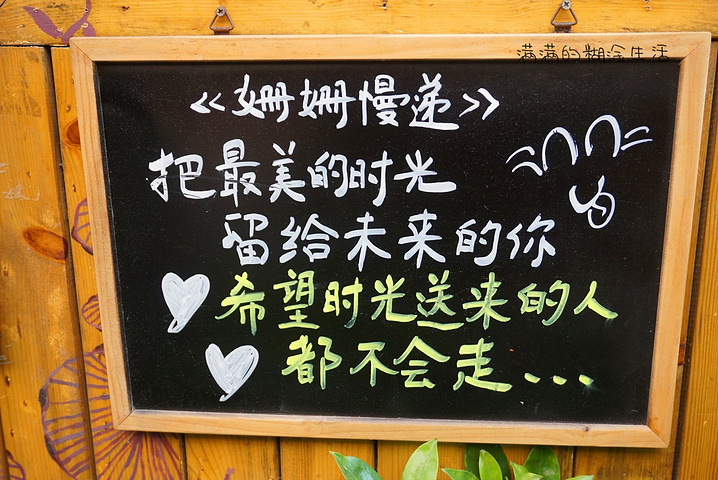 满满的糊涂生活
《姗姗慢递》
把最美的时光
留给未来的你
希望时光送来的人
都不会走...